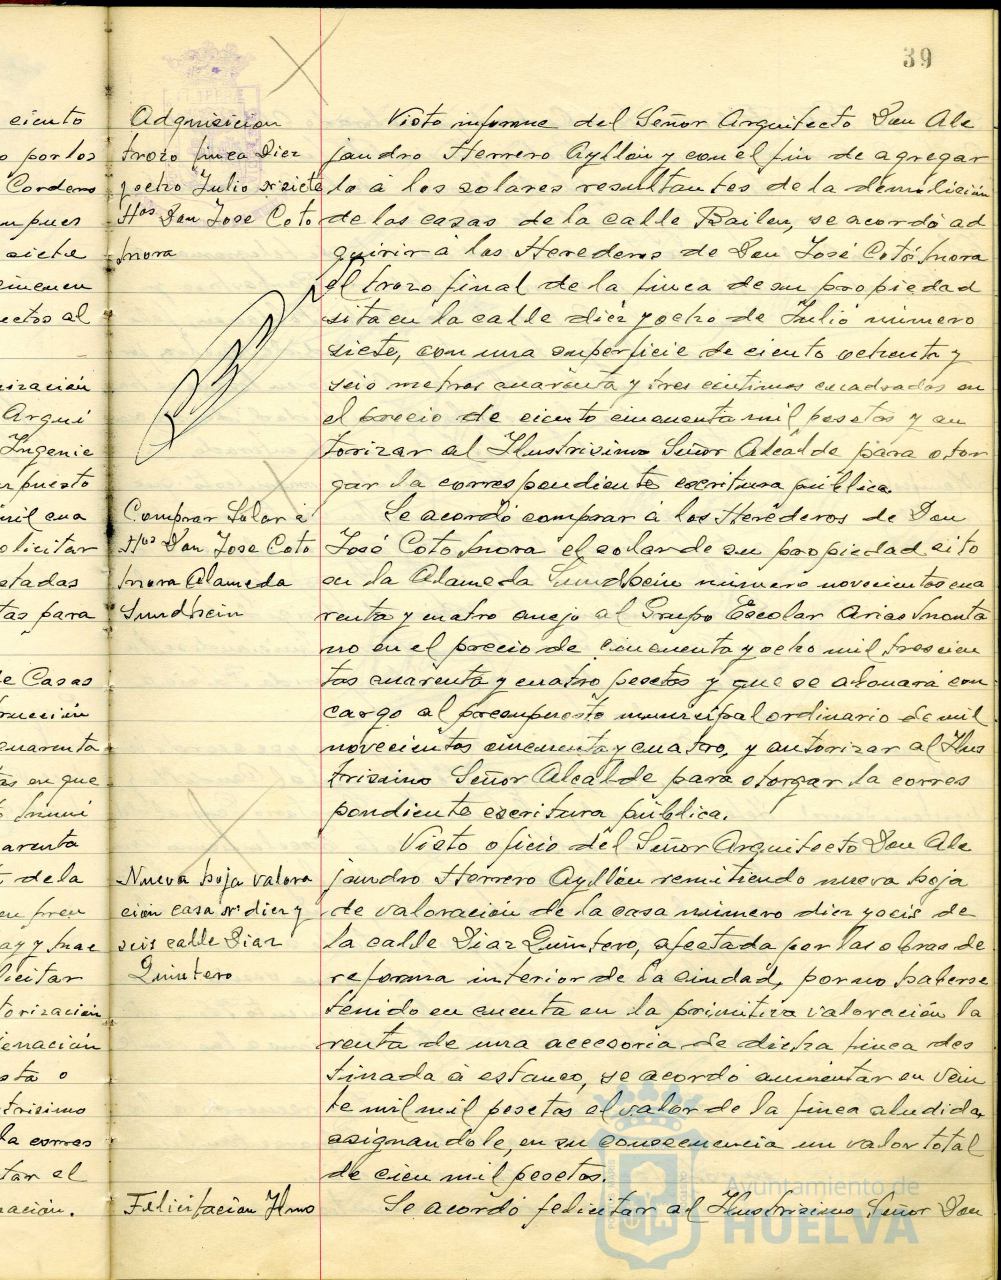 39
eiento
o por los
Cordero
mpues
siete
ectos al
nización
Arqui
Ingenie
puesto
mil cua
olicitar
stadas
tas para
de Casas
rucción
cuarenta
tas en que
arenta
de la
licitar
torización
enación
sta o
trisimo
la corres
tar el
nación.
Adquisicion
trozo finca Diez
y ocho Julio nº siete
Hos Don Jose Coto
Mora
Visto informe del Señor Arquitecto Don Ale
jandro Herrero Ayllón y con el fin de agregar
lo á los solares resultantes de la demolición
de las casas de la calle Bailen, se acordó ad
quirir á los Herederos de Don José Cotó Mora
el trozo final de la finca de su propiedad
sita en la calle diez y ocho de Julio número
siete, con una superficie de ciento ochenta y
seis metros cuarenta y tres centimos cuadrados en
el precio de ciento cincuenta mil pesetas y au
torizar al Ilustrisimo Señor Alcalde para otor
gar la correspondiente escritura pública.
Comprar Solar á
Hos Don Jose Coto
Mora Alameda
Sundhein
Se acordó comprar á los Herederos de Don
José Coto Mora el solar de su propiedad sito
en la Alameda Sundhein número novecientos cua
renta y cuatro anejo al Grupo Escolar Arias Monta
no en el precio de cincuenta y ocho mil trescien
tas cuarenta y cuatro pesetas y que se abonará con
cargo al presupuesto municipal ordinario de mil
novecientos cincuenta y cuatro, y autorizar al Ilus
trisimo Señor Alcalde para otorgar la corres
pondiente escritura pública.
Nueva hoja valora
ción casa nº diez y
seis calle Diaz
Quintero
Visto oficio del Señor Arquitecto Don Ale
jandro Herrero Ayllón remitiendo nueva hoja
de valoración de la casa número diez y seis de
la calle Diaz Quintero, afectada por las obras de
reforma interior de la ciudad, por no haberse
tenido en cuenta en la primitiva valoración la
renta de una accesoria de dicha finca des
tinada á estanco, se acordó aumentar en vein
te mil mil pesetas el valor de la finca aludida
asignandole, en su consecuencia un valor total
de cien mil pesetas.
Felicitación Ilmo
Se acordó felicitar al Ilustrisimo Señor Don
Ayuntamiento de
HUELVA